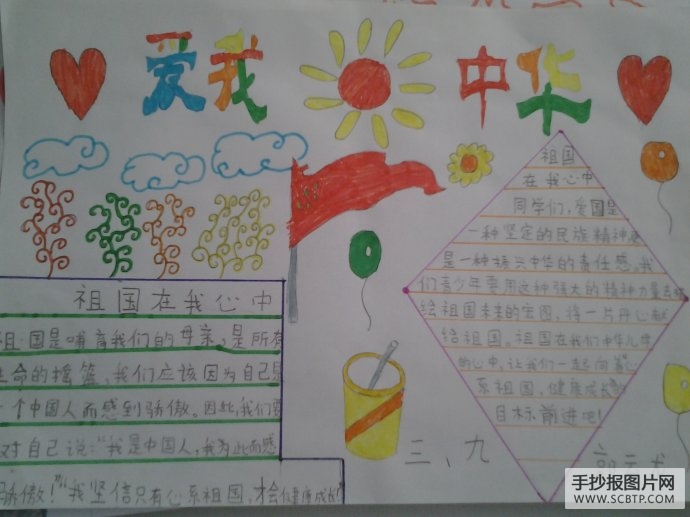 爱我中华
祖国在我心中
祖国是哺育我们的母亲,是所有
生命的摇篮,我们应该因为自己是
一个中国人而感到骄傲。因此,我们要
对自己说:“我是中国人,我为此而感
骄傲!”“我坚信只有心系祖国,才会健康成长!
祖国
在我心中
同学们,爱国是
一种坚定的民族精神,更
是一种振兴中华的责任感,我
们青少年要用这种强大的精神力量去
绘祖国未来的宏图,将一片丹心献
给祖国。祖国在我们中华儿女
的心中,让我们一起向着心
系祖国,健康成长的
目标前进吧!
三、九
手抄报图片网
WWW.SCBTP.COM